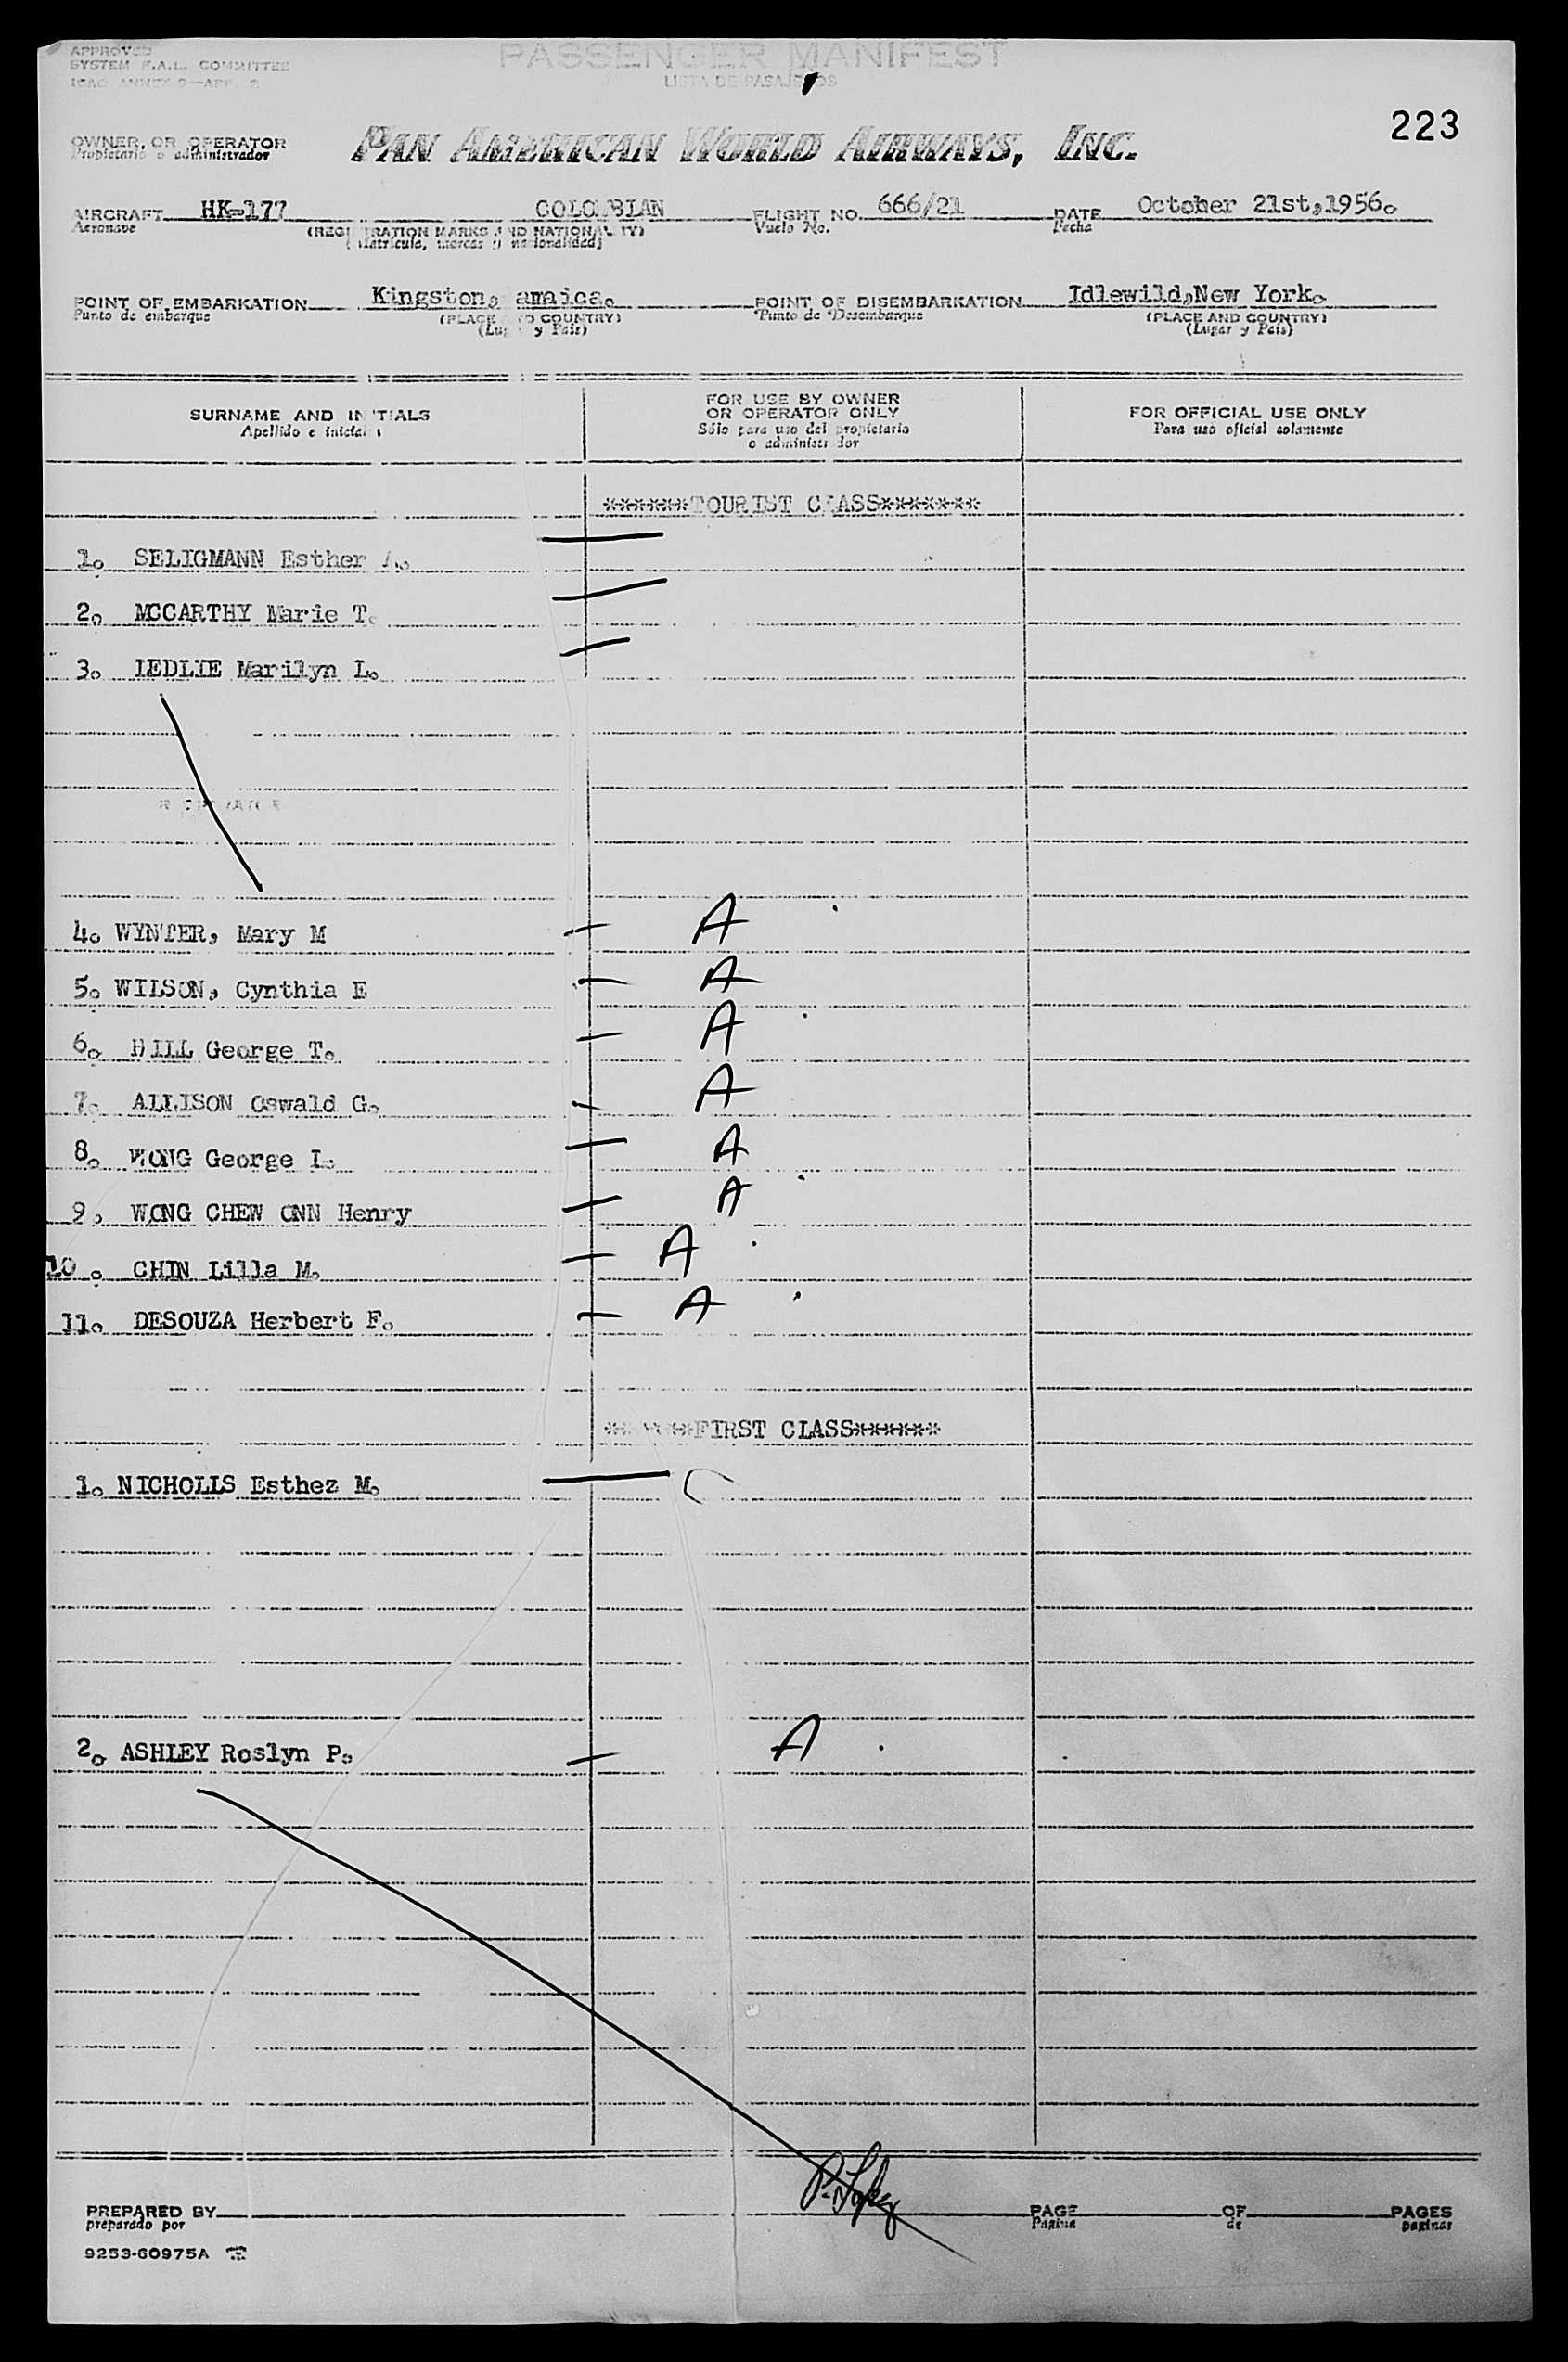 APPROVED
SYSTEM F.A.L. COMMITTEE
ICAO ANNEX 9—APP. 2
PASSENGER MANIFEST
LISTA DE PASAJEROS
223
OWNER, OR OPERATOR
Propietario o administrador
PAN AMERICAN WORLD AIRWAYS, INC.
AIRCRAFT HK-177 COLOMBIAN FLIGHT NO. 666/21 DATE October 21st,1956.
Aeronave (REGISTRATION MARKS AND NATIONALITY) Vuelo No. Fecha
(Matrícula, marcas y nacionalidad)
POINT OF EMBARKATION Kingston, Jamaica. POINT OF DISEMBARKATION Idlewild,New York.
Punto de embarque (PLACE AND COUNTRY) Punto de Desembarque (PLACE AND COUNTRY)
(Lugar y País) (Lugar y País)
SURNAME AND INITIALS
Apellido e iniciales
FOR USE BY OWNER
OR OPERATOR ONLY
Sólo para uso del propietario
o administrador
FOR OFFICIAL USE ONLY
Para uso oficial solamente
******TOURIST CLASS*******
1. SELIGMANN Esther A.
2. MCCARTHY Marie T.
3. IEDLIE Marilyn L.
4. WYNTER, Mary M A
5. WILSON, Cynthia E A
6. HILL George T. A
7. ALLISON Oswald G. A
8. WONG George L. A
9. WONG CHEW ONN Henry A
10. CHIN Lilla M. A
11. DESOUZA Herbert F. A
******FIRST CLASS******
1. NICHOLLS Esthez M. C
2. ASHLEY Roslyn P. A
PREPARED BY PAGE OF PAGES
preparado por Página de paginas
9253-60975A